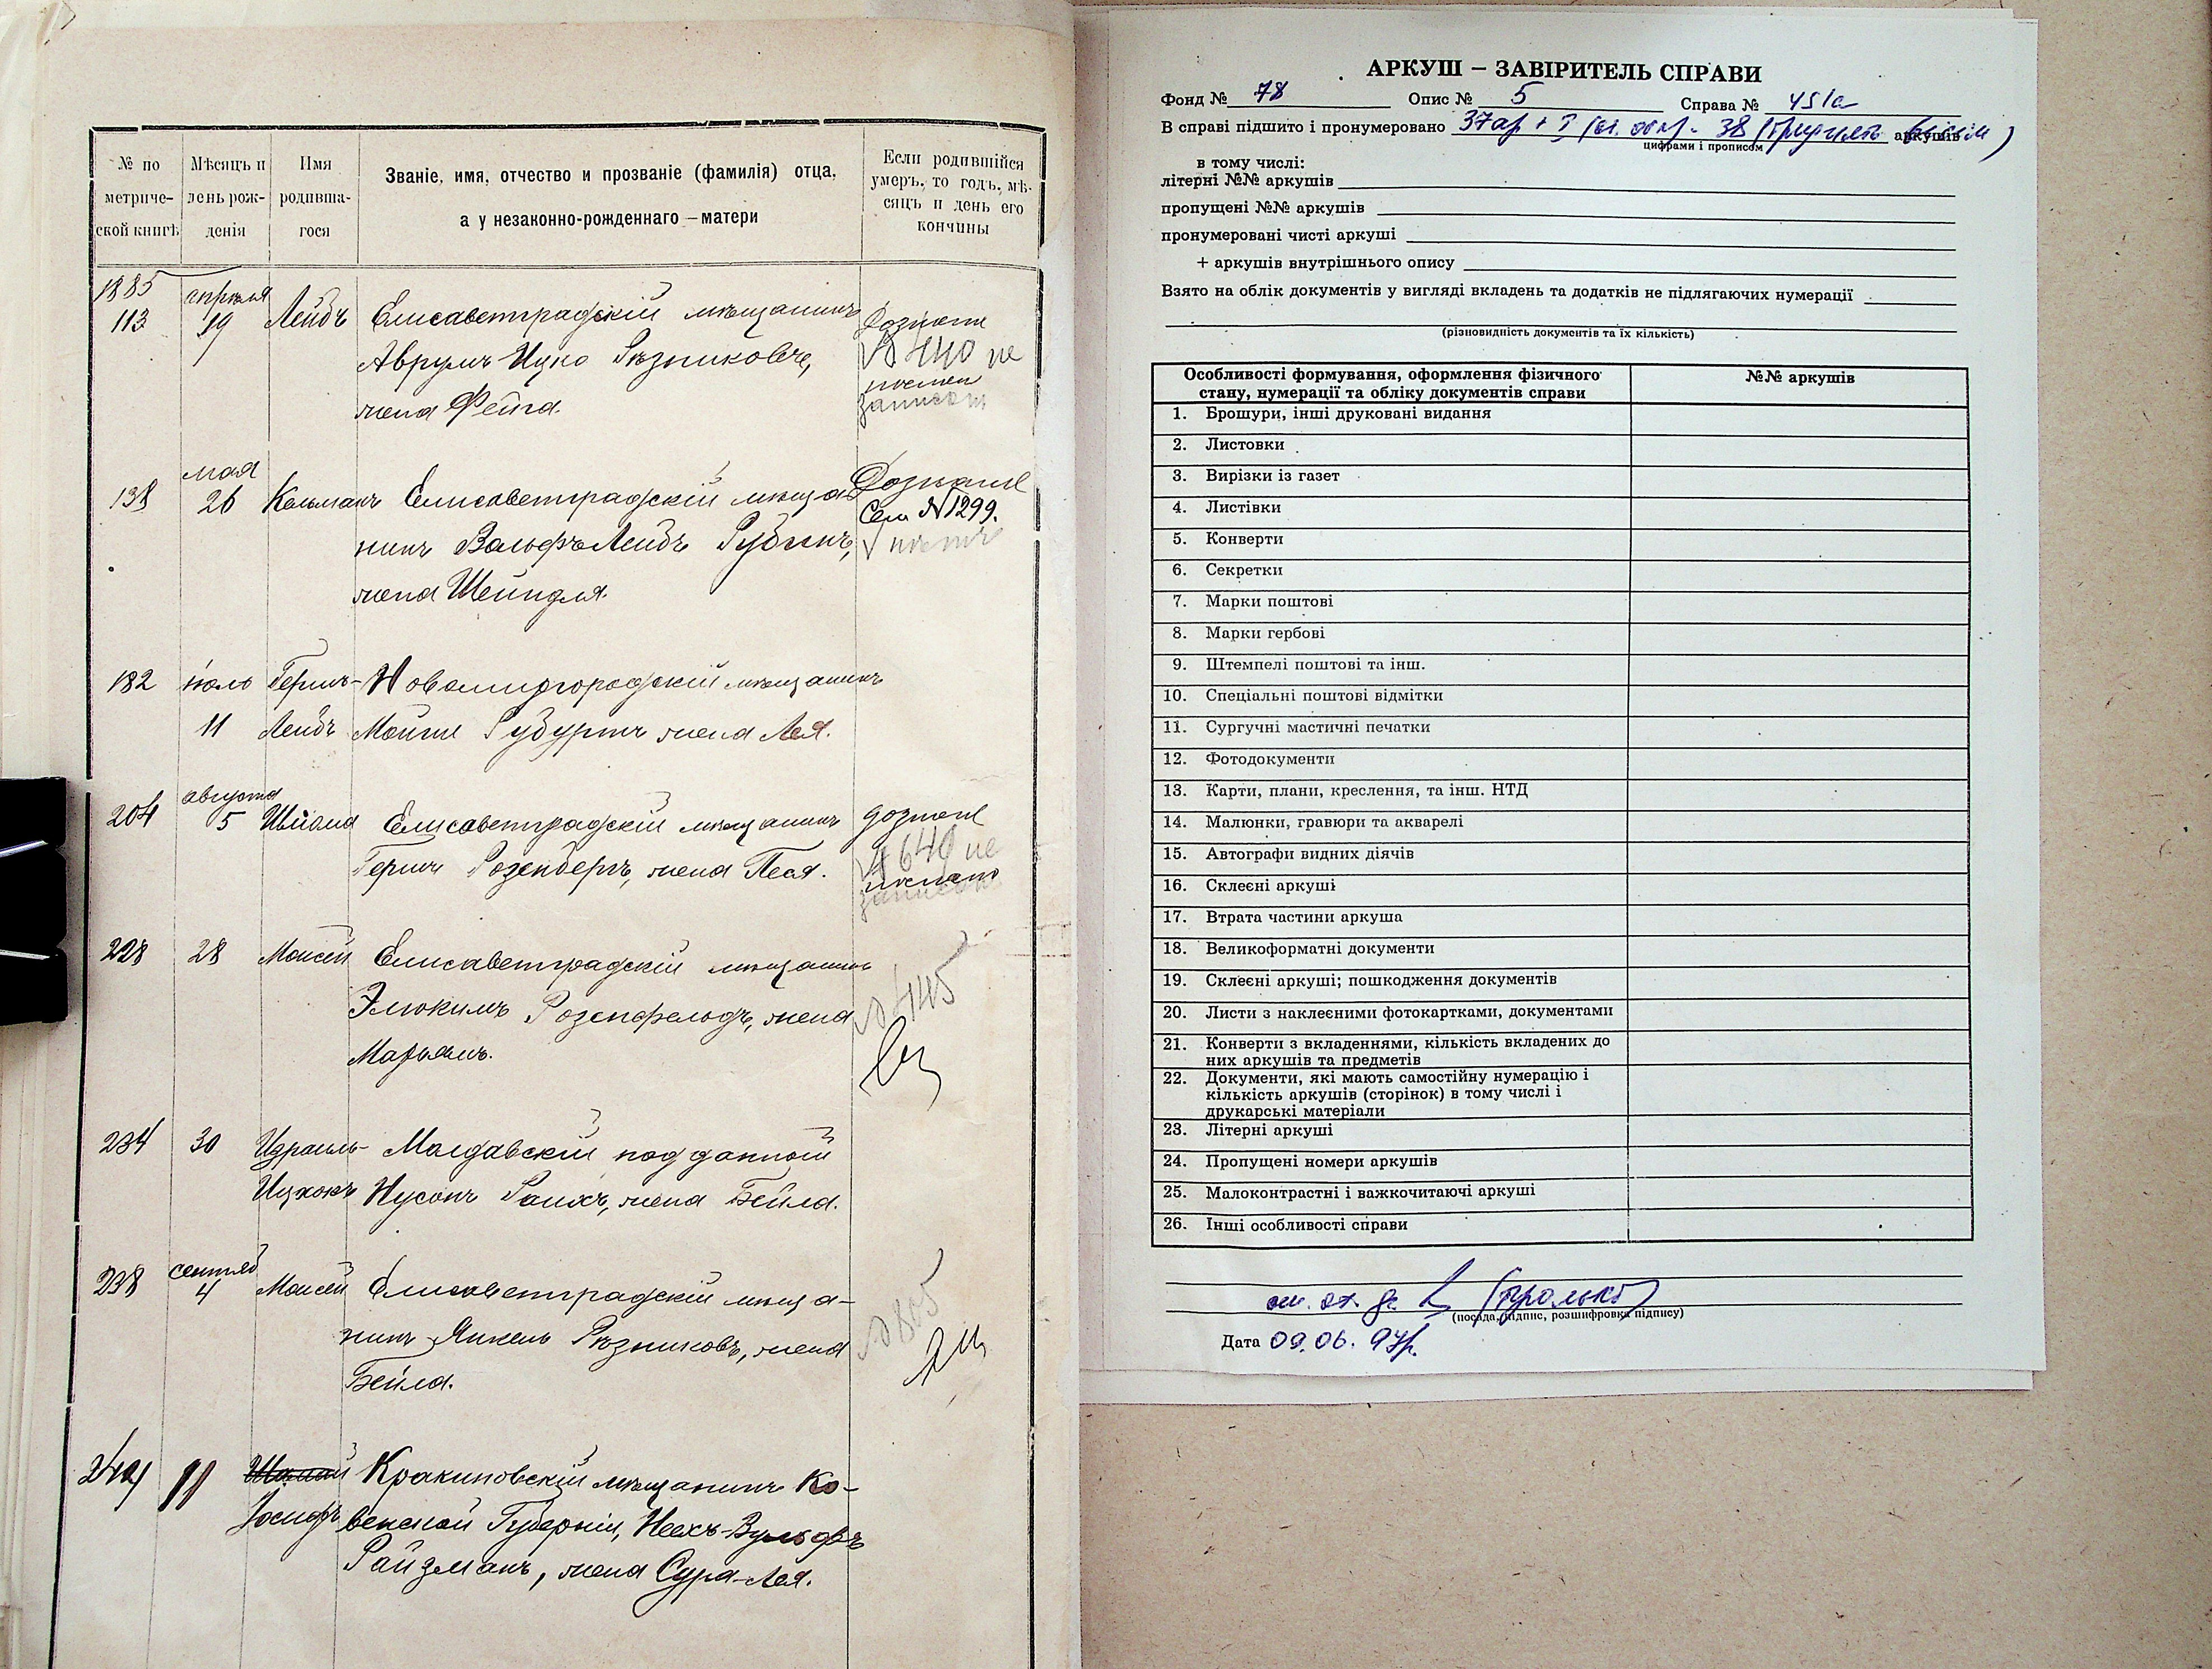 № по метриче-ской книгѣ
Мѣсяцъ и день рож-денія
Имя родивша-гося
Званіе, имя, отчество и прозваніе (фамилія) отца, а у незаконно-рожденнаго — матери
Если родившійся умеръ, то годъ, мѣ-сяцъ и день его кончины
1885 апрѣля
113 19 Лейбъ Елисаветградскій мѣщанинъ
Аврумъ-Ицко Рѣзниковъ,
жена Фейга.
№ 440 не
мая
138 26 Кальманъ Елисаветградскій мѣща
нинъ Вольфъ Лейбъ Рубинъ,
жена Шейндля.
Сем №1299.
182 іюль Гершъ- Новомиргородскій мѣщанинъ
11 Лейбъ Мойше жена Лея.
августа
204 5 Елисаветградскій мѣщанинъ
Гершъ Розенбергъ, жена Песя.
№ 640 не
228 28 Моисей Елисаветградскій мѣщанинъ
Элюкимъ Розенфельдъ, жена
Марьямъ.
234 30 Израиль- Молдавскій подданный
Ицхокъ Нусонъ Райхъ, жена Бейла.
сентяб
238 4 Моисей Елисаветградскій мѣща-
нинъ Янкель Рѣзниковъ, жена
Бейла.
№ 805
11 Кракиновскій мѣщанинъ Ко-
Іосифъ венской Губерніи, Вульфъ
Райзманъ, жена Сура-Лея.
АРКУШ – ЗАВІРИТЕЛЬ СПРАВИ
Фонд № 78 Опис № 5 Справа № 451а
В справі підшито і пронумеровано 37 ар + 38 (тридцять вісім) аркушів
цифрами і прописом
в тому числі:
літерні №№ аркушів
пропущені №№ аркушів
пронумеровані чисті аркуші
+ аркушів внутрішнього опису
Взято на облік документів у вигляді вкладень та додатків не підлягаючих нумерації
(різновидність документів та їх кількість)
Особливості формування, оформлення фізичного №№ аркушів
стану, нумерації та обліку документів справи
1. Брошури, інші друковані видання
2. Листовки
3. Вирізки із газет
4. Листівки
5. Конверти
6. Секретки
7. Марки поштові
8. Марки гербові
9. Штемпелі поштові та інш.
10. Спеціальні поштові відмітки
11. Сургучні мастичні печатки
12. Фотодокументи
13. Карти, плани, креслення, та інш. НТД
14. Малюнки, гравюри та акварелі
15. Автографи видних діячів
16. Склеєні аркуші
17. Втрата частини аркуша
18. Великоформатні документи
19. Склеєні аркуші; пошкодження документів
20. Листи з наклеєними фотокартками, документами
21. Конверти з вкладеннями, кількість вкладених до
них аркушів та предметів
22. Документи, які мають самостійну нумерацію і
кількість аркушів (сторінок) в тому числі і
друкарські матеріали
23. Літерні аркуші
24. Пропущені номери аркушів
25. Малоконтрастні і важкочитаючі аркуші
26. Інші особливості справи
(посада, підпис, розшифровка підпису)
Дата 09.06.97р.